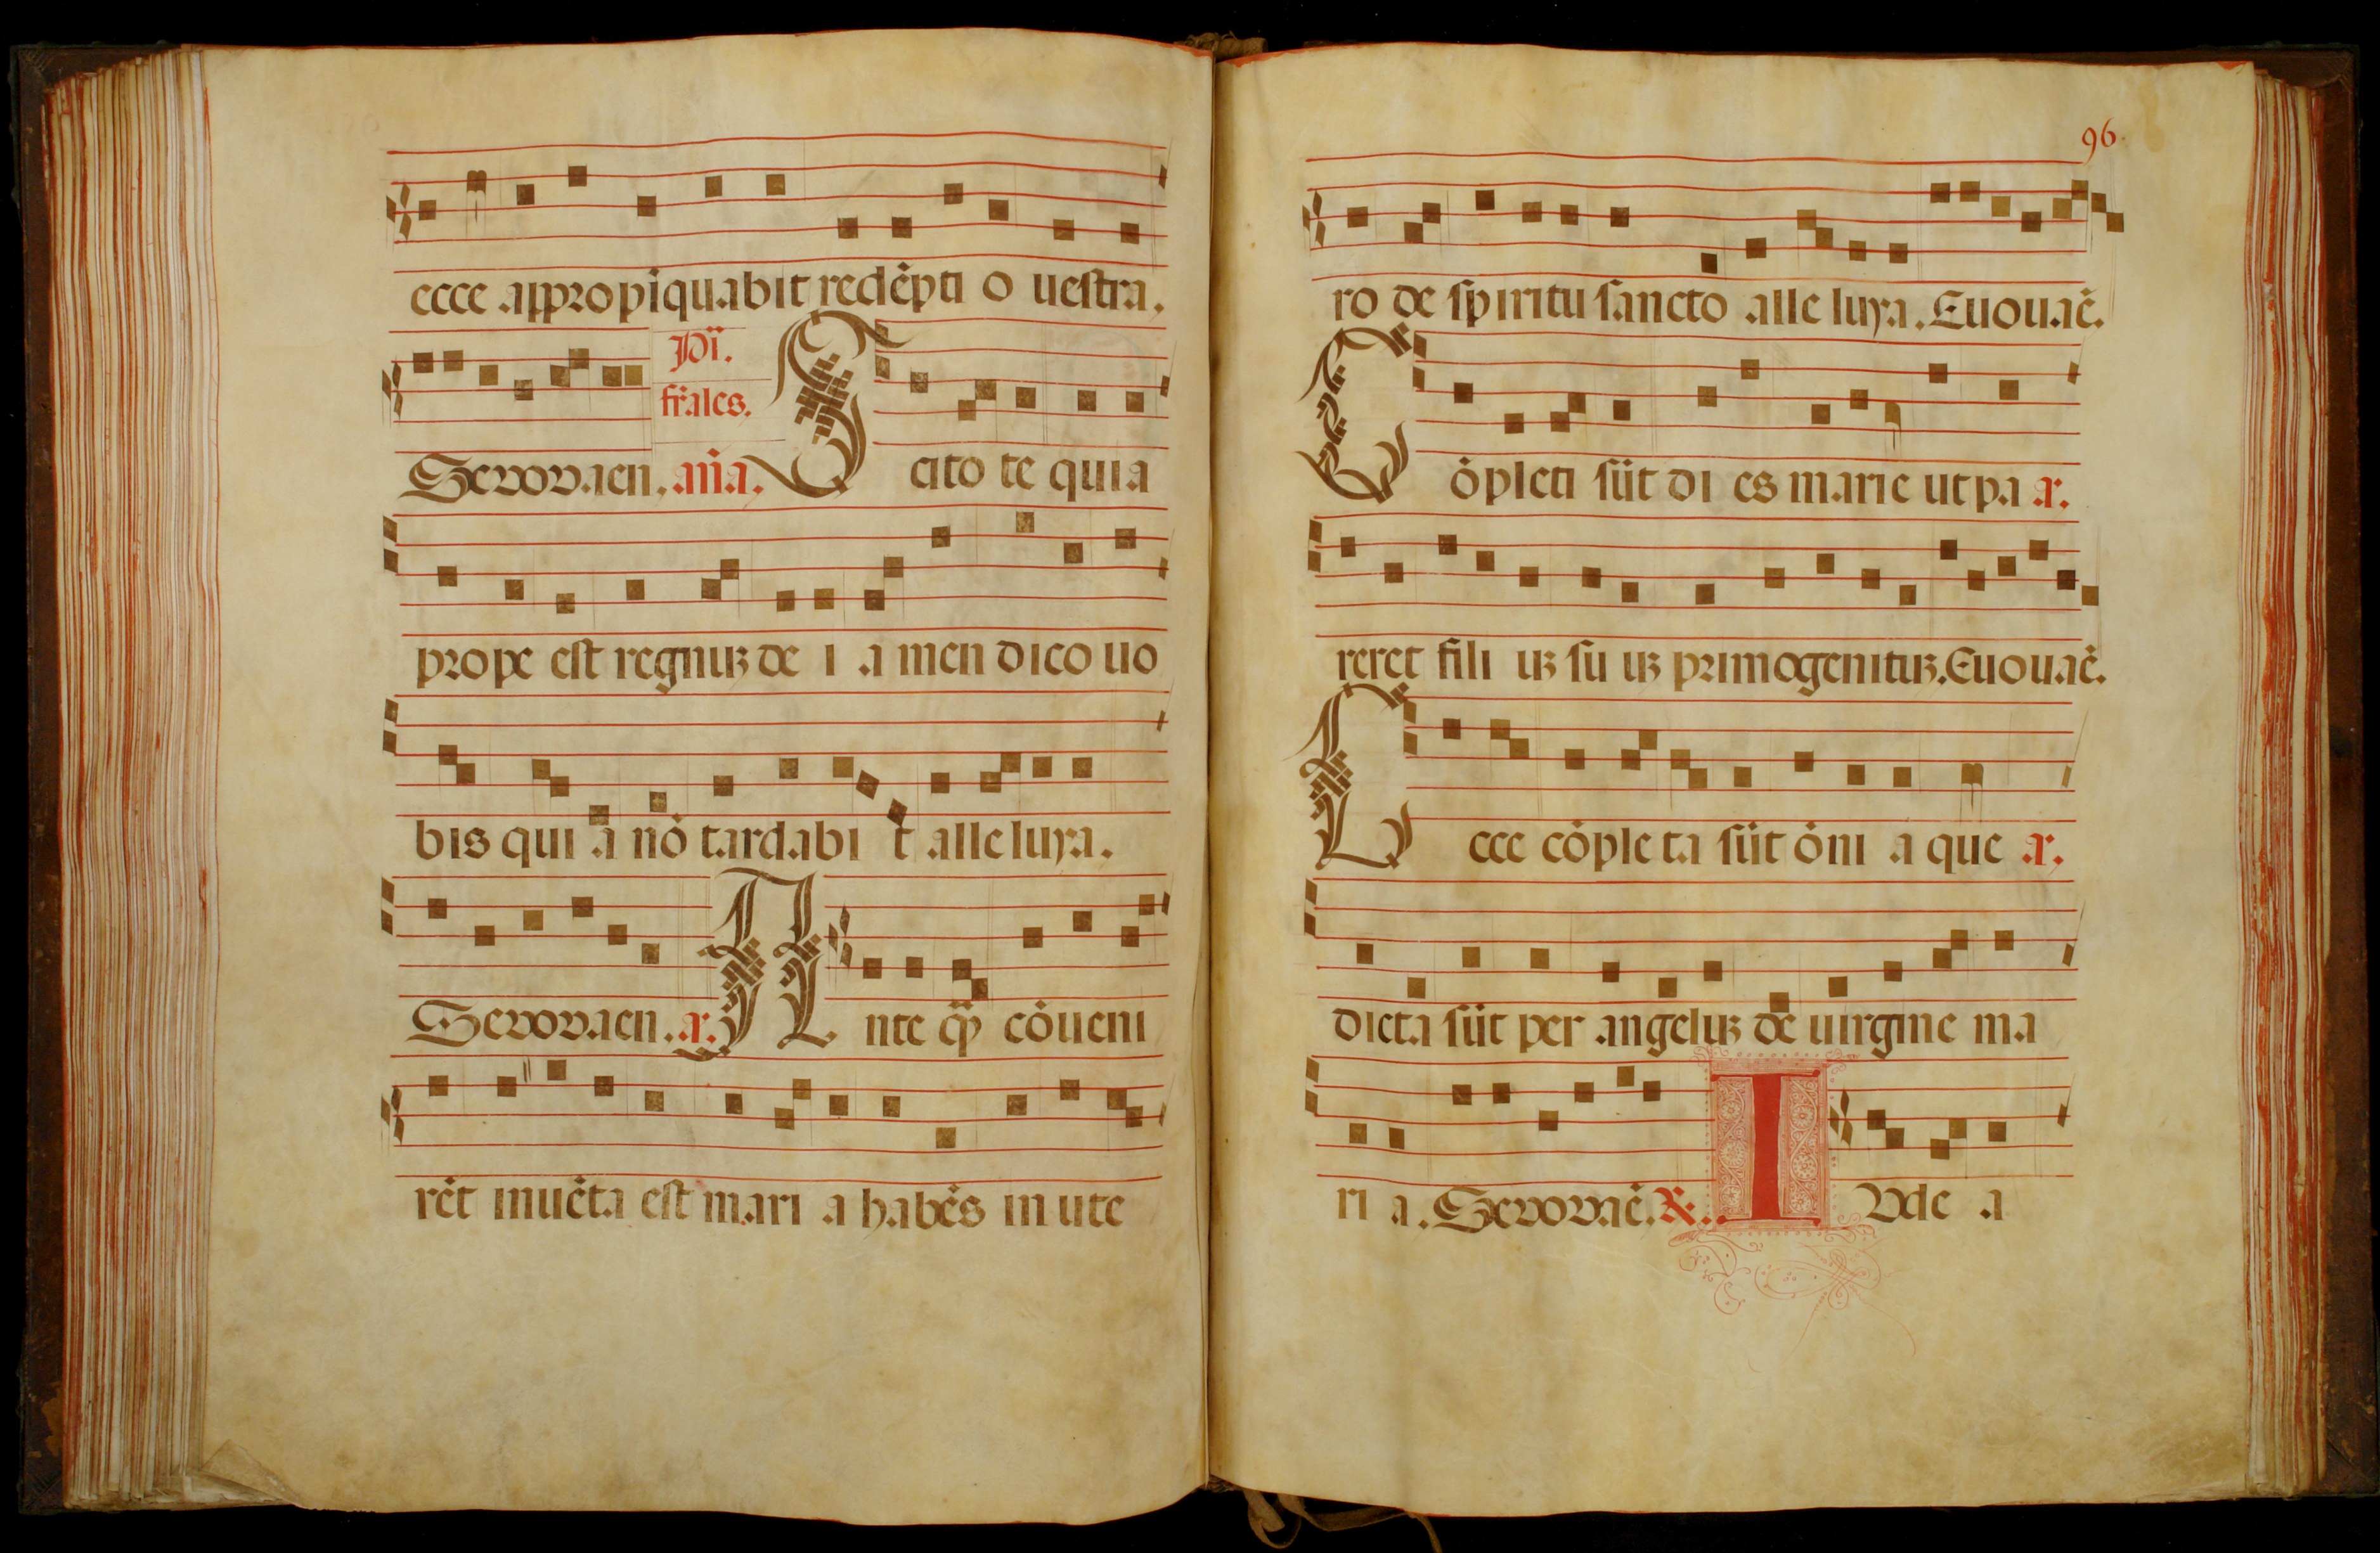 ecce appropı̇quabit redēpti o uestra.
Pꝰi.
fr̄ales.
Sevovaen. an̄a. S cito te quia
prope est regnuꝫ de i a men dico uo
bis qui a nō tardabi t alleluya.
Sevovaen. a. A nte q̄ȝ cōueni
rēt inuēta est mari a habēs in ute
96.
ro de spiritu sancto alle luya. Euouaē.
C ōpleti sūt di es marie ut pa a.
reret fili uꝫ su uꝫ primogenituꝫ. Euouaē.
E cce cōple ta sūt ōni a que a.
dicta sūt per angeluꝫ de uirgine ma
ri a. Sevovaē. ℟. I Vde a